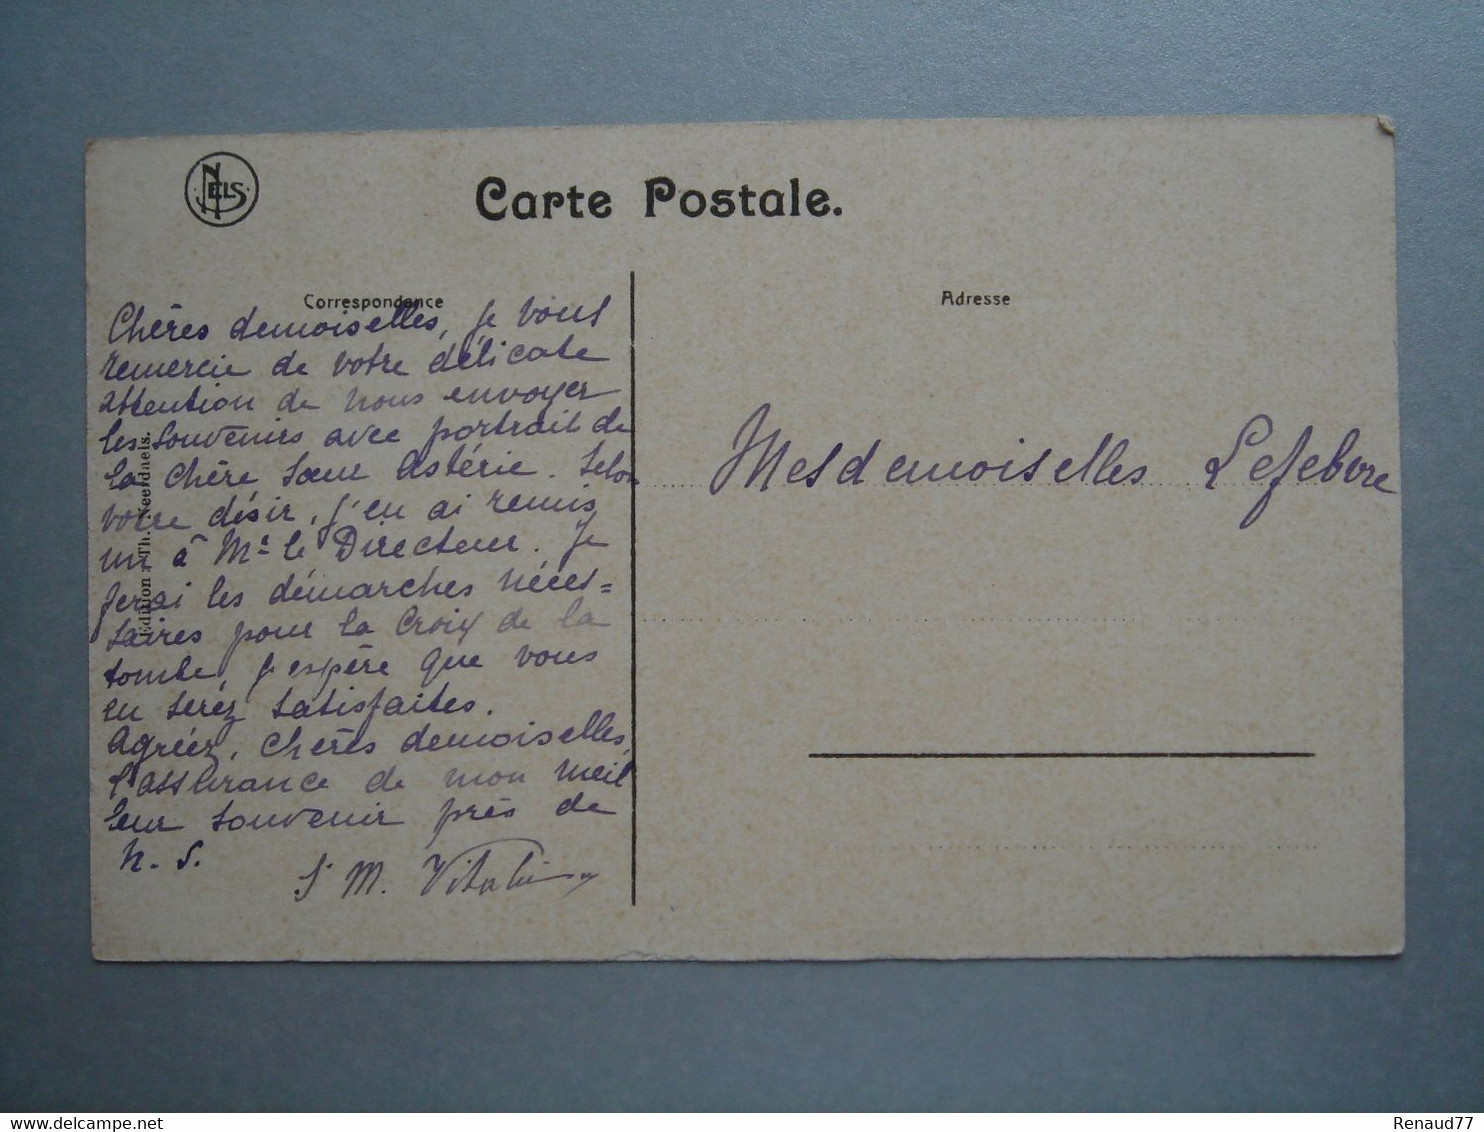 NELS
Carte Postale.
Correspondance
Adresse
Chères demoiselles, je vous
remercie de votre délicate
attention de nous envoyer
les souvenirs avec portrait de
la chère Sœur Astérie. Selon
votre désir, j'en ai remis
un à Mr le Directeur. Je
ferai les démarches néces=
saires pour la Croix de la
tombe, j'espère que vous
en serez satisfaites.
Agréez, chères demoiselles,
l'assurance de mon meil
leur souvenir près de
N. S.
Sr M.
Edition Th. Neerdaels.
Mesdemoiselles Lefebvre
Renaud77